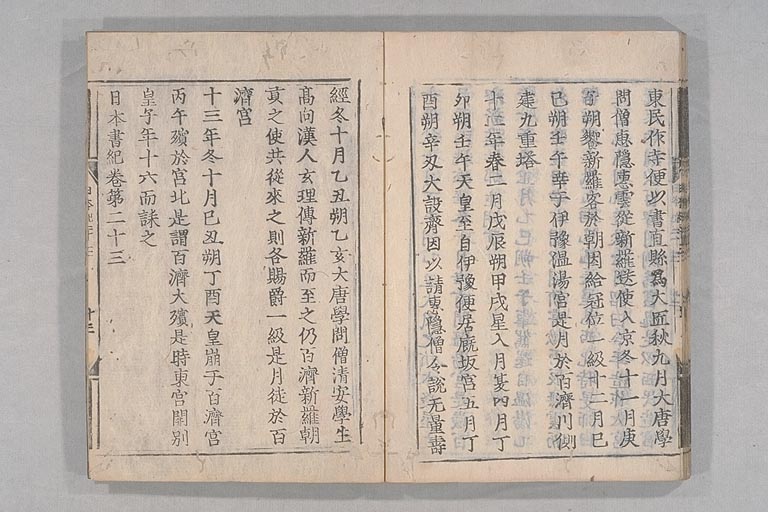 東民作寺便以書直縣爲大匠秋九月大唐學
問僧惠隱惠雲從新羅送使入京冬十一月庚
子朔饗新羅客於朝因給冠位一級十二月己
巳朔壬午幸于伊豫温湯宮是月於百濟川側
建九重塔
十二年春二月戊辰朔甲戌星入月夏四月丁
卯朔壬午天皇至自伊豫便居厩坂宮五月丁
酉朔辛丑大設齋因以請惠隱僧令說无量壽
經冬十月乙丑朔乙亥大唐學問僧清安學生
髙向漢人玄理傳新羅而至之仍百濟新羅朝
貢之使共從來之則各賜爵一級是月徙於百
濟宮
十三年冬十月己丑朔丁酉天皇崩于百濟宮
丙午殯於宮北是謂百濟大殯是時東宮開別
皇子年十六而誄之
日本書紀卷第二十三